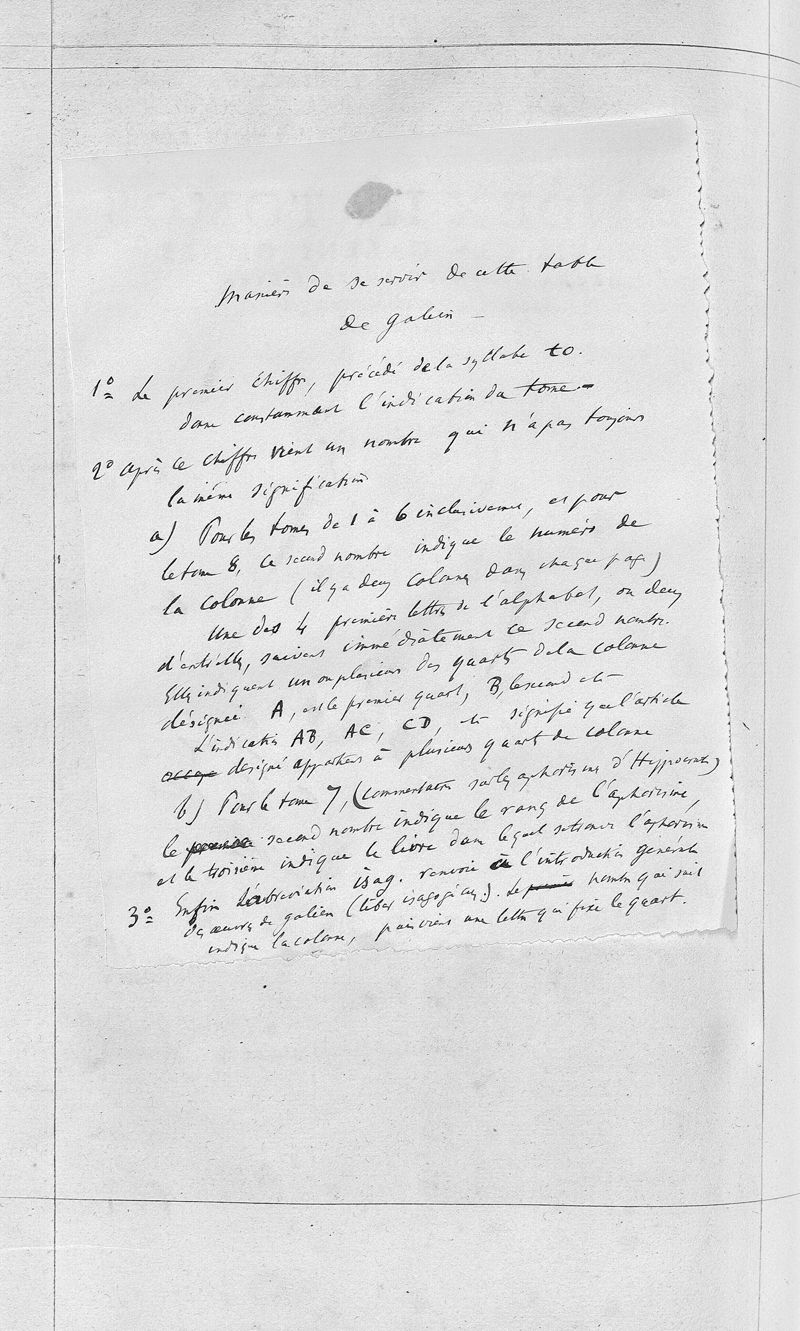 Manière de se servir de cette table
de galien —
1º Le premier chiffre, précédé de la syllabe to.
donne constamment l'indication du tome —
2º après ce chiffre vient un nombre qui n'a pas toujours
la même signification
a) Pour les tomes de 1 à 6 inclusivement, et pour
le tome 8, ce second nombre indique le numéro de
la colonne (il y a deux colonnes dans chaque page)
Une des 4 premières lettres de l'alphabet, ou deux
d'entr'elles, suivent immédiatement ce second nombre.
Elles indiquent un ou plusieurs des quarts de la colonne
désignée. A, est le premier quart; B, le second etc
L'indication AB, AC, CD, etc signifie que l'article
désigné appartient à plusieurs quart de colonne
b) Pour le tome 7, (commentaires sur les aphorismes d'Hippocrate)
le premier second nombre indique le rang de l'aphorisme,
et le troisième indique le livre dans lequel se trouve l'aphorisme
3º Enfin L'abréviation isag. renvoie à l'introduction générale
des œuvres de galien (libri isagogici). Le premier nombre qui suit
indique la colonne, puis vient une lettre qui fixe le quart.